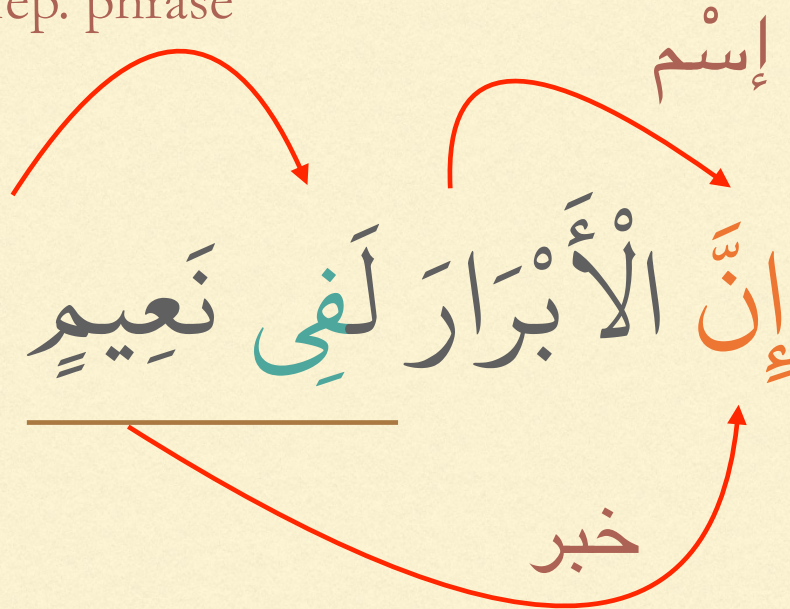 phrase
إسْم
إِنَّ الْأَبْرَارَ لَفِى نَعِيمٍ
خبر